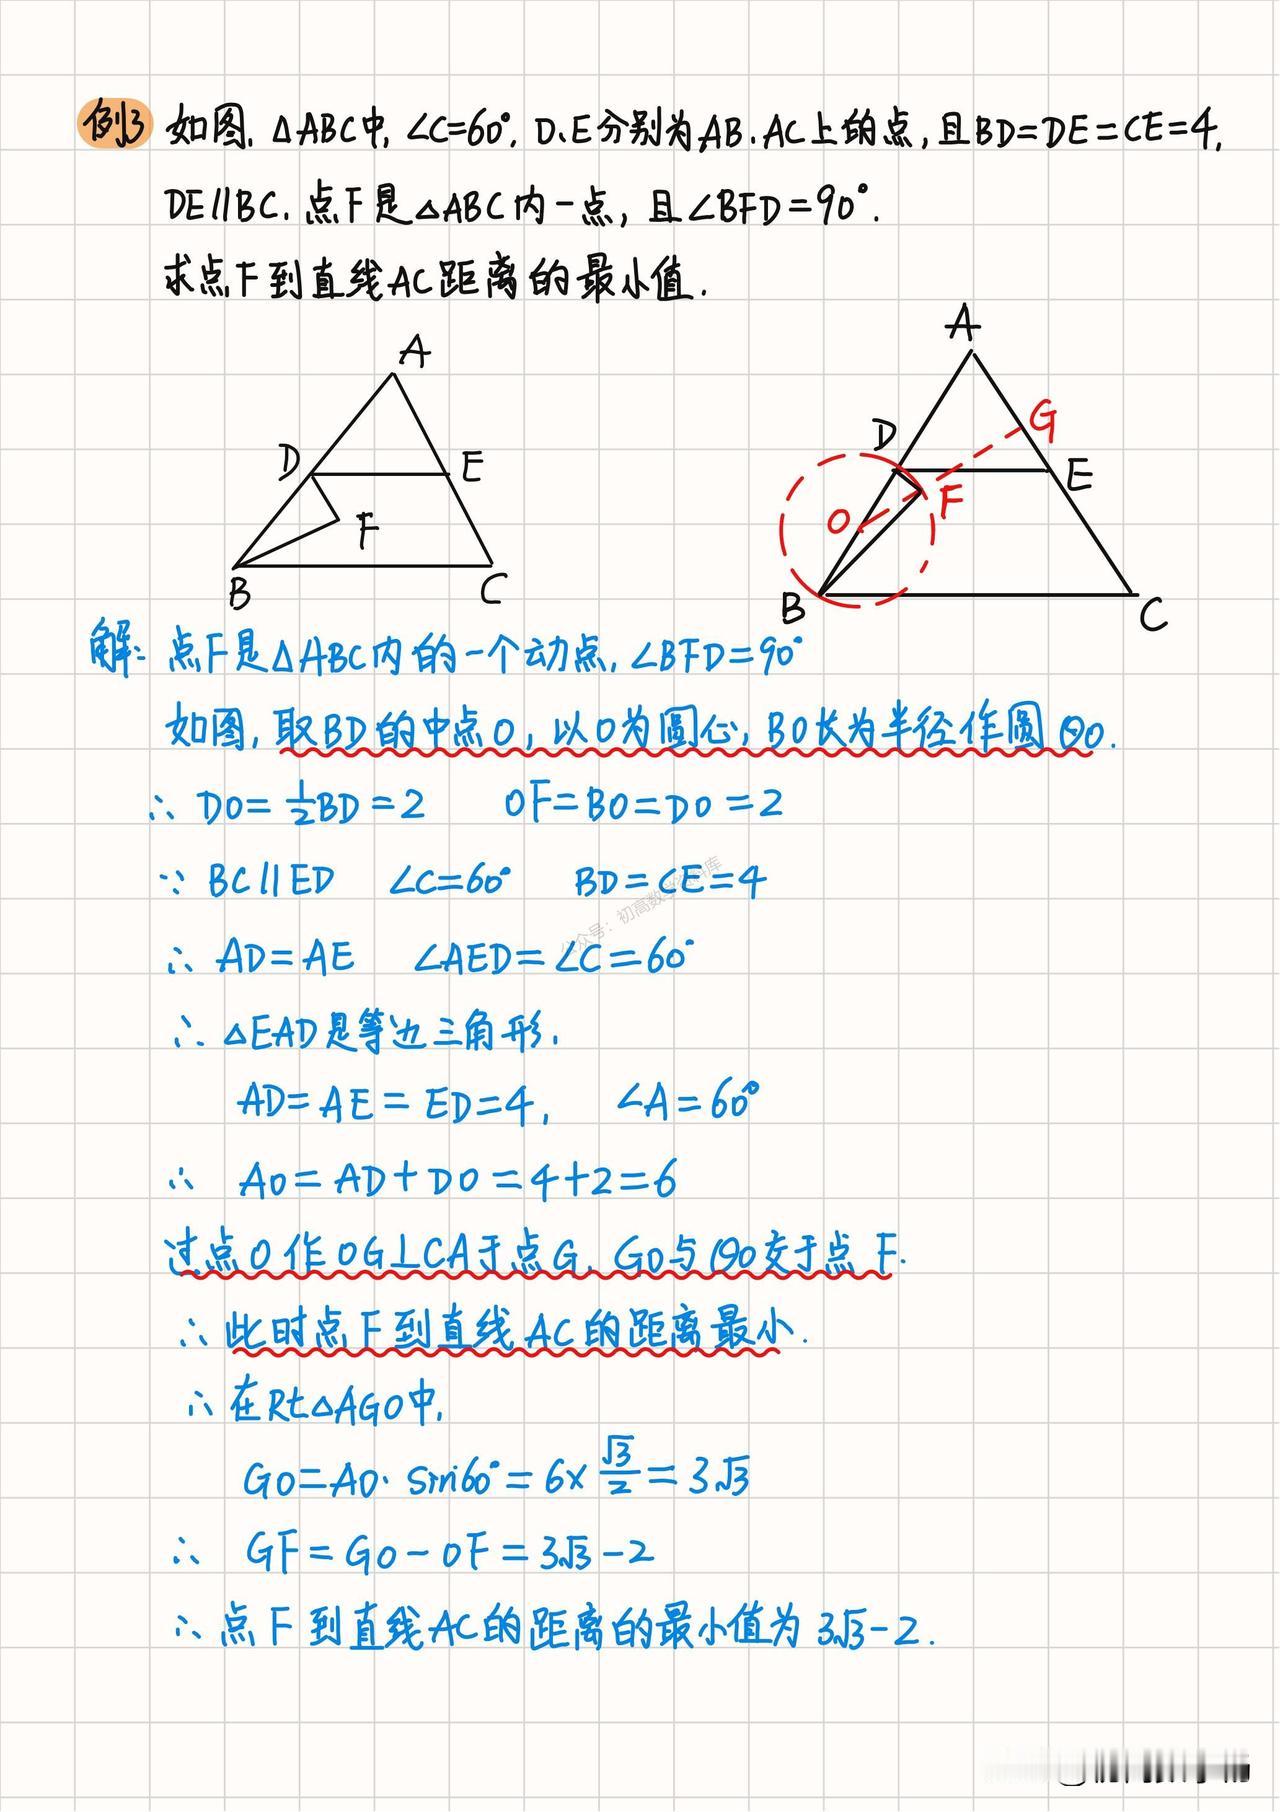 例3 如图, △ABC中, ∠C=60°, D、E分别为AB、AC上的点, 且BD=DE=CE=4,
DE∥BC. 点F是△ABC内一点, 且∠BFD=90°.
求点F到直线AC距离的最小值.
A
D
E
F
B
C
A
D
G
E
F
O
B
C
解: 点F是△ABC内的一个动点, ∠BFD=90°
如图, 取BD的中点O, 以O为圆心, BO长为半径作圆⊙O.
∴ DO=½BD=2 OF=BO=DO=2
∵ BC∥ED ∠C=60° BD=CE=4
公众号: 初高数学资料库
∴ AD=AE ∠AED=∠C=60°
∴ △EAD是等边三角形.
AD=AE=ED=4, ∠A=60°
∴ AO=AD+DO=4+2=6
过点O作OG⊥CA于点G, GO与⊙O交于点F.
∴ 此时点F到直线AC的距离最小.
∴ 在Rt△AGO中,
GO=AO·sin60°=6×√3/2=3√3
∴ GF=GO-OF=3√3-2
∴ 点F到直线AC的距离的最小值为3√3-2.